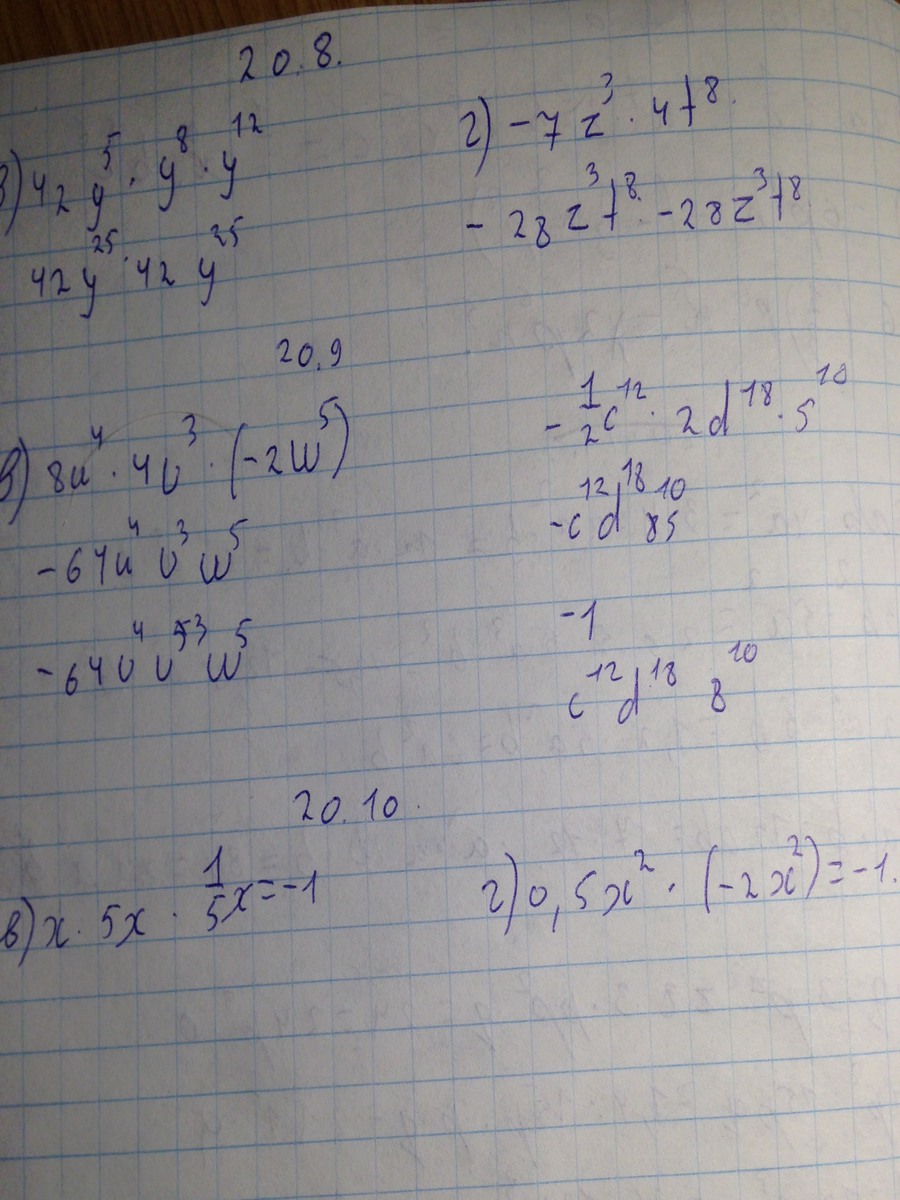 20.8.
в) 42y⁵ · y⁸ · y¹²
42y²⁵ · 42y²⁵
г) -7z³ · 4t⁸.
-28z³t⁸. -28z³t⁸
20.9
в) 8u⁴ · 4v³ · (-2w⁵)
-64u⁴v³w⁵
-64u⁴v³w⁵
-1/2c¹² · 2d¹⁸ · s¹⁰
-c¹²d¹⁸ s¹⁰
-1
c¹²d¹⁸ 8¹⁰
20.10.
в) x · 5x · 1/5x = -1
г) 0,5x² · (-2x²) = -1.